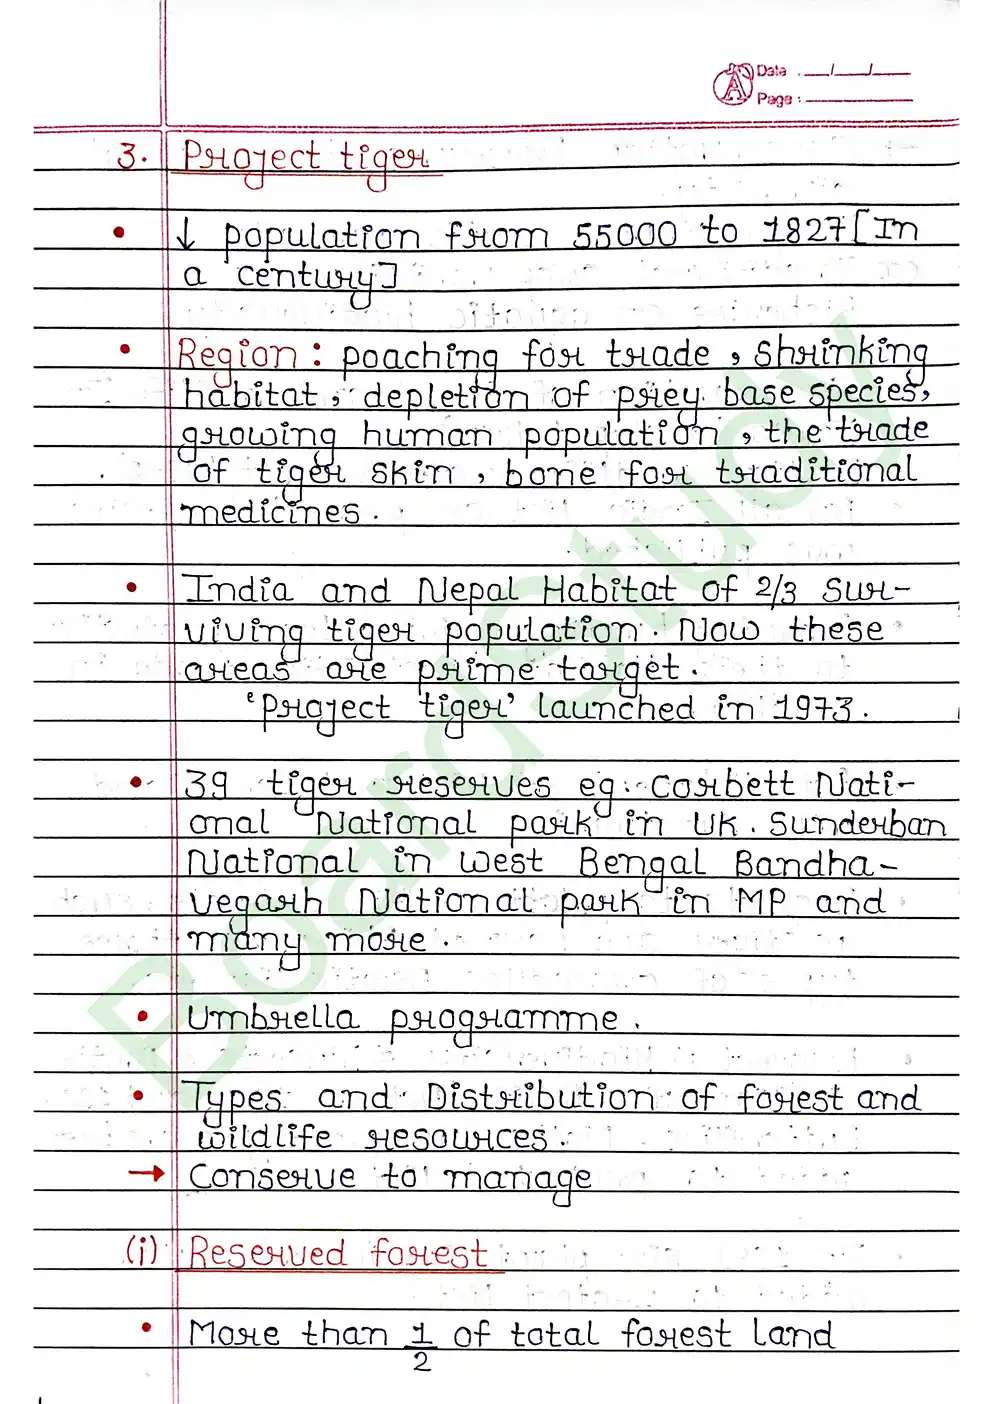 Date : __/__/__
Page : ______
3. Project tiger
• ↓ population from 55000 to 1827 [In
a century]
• Region : poaching for trade , shrinking
habitat , depletion of priey base species,
growing human population , the trade
of tiger skin , bone for traditional
medicines .
• India and Nepal Habitat of 2/3 sur-
viving tiger population . Now these
areas are prime target .
'Project tiger' launched in 1973 .
• 39 tiger reserves eg . Corbett Nati-
onal National park in UK . Sunderban
National in west Bengal Bandha-
vegarh National park in MP and
many more .
• Umbrella programme .
• Types and Distribution of forest and
wildlife resources .
→ Conserve to manage
(i) Reserved forest
• More than 1/2 of total forest land
Board Study